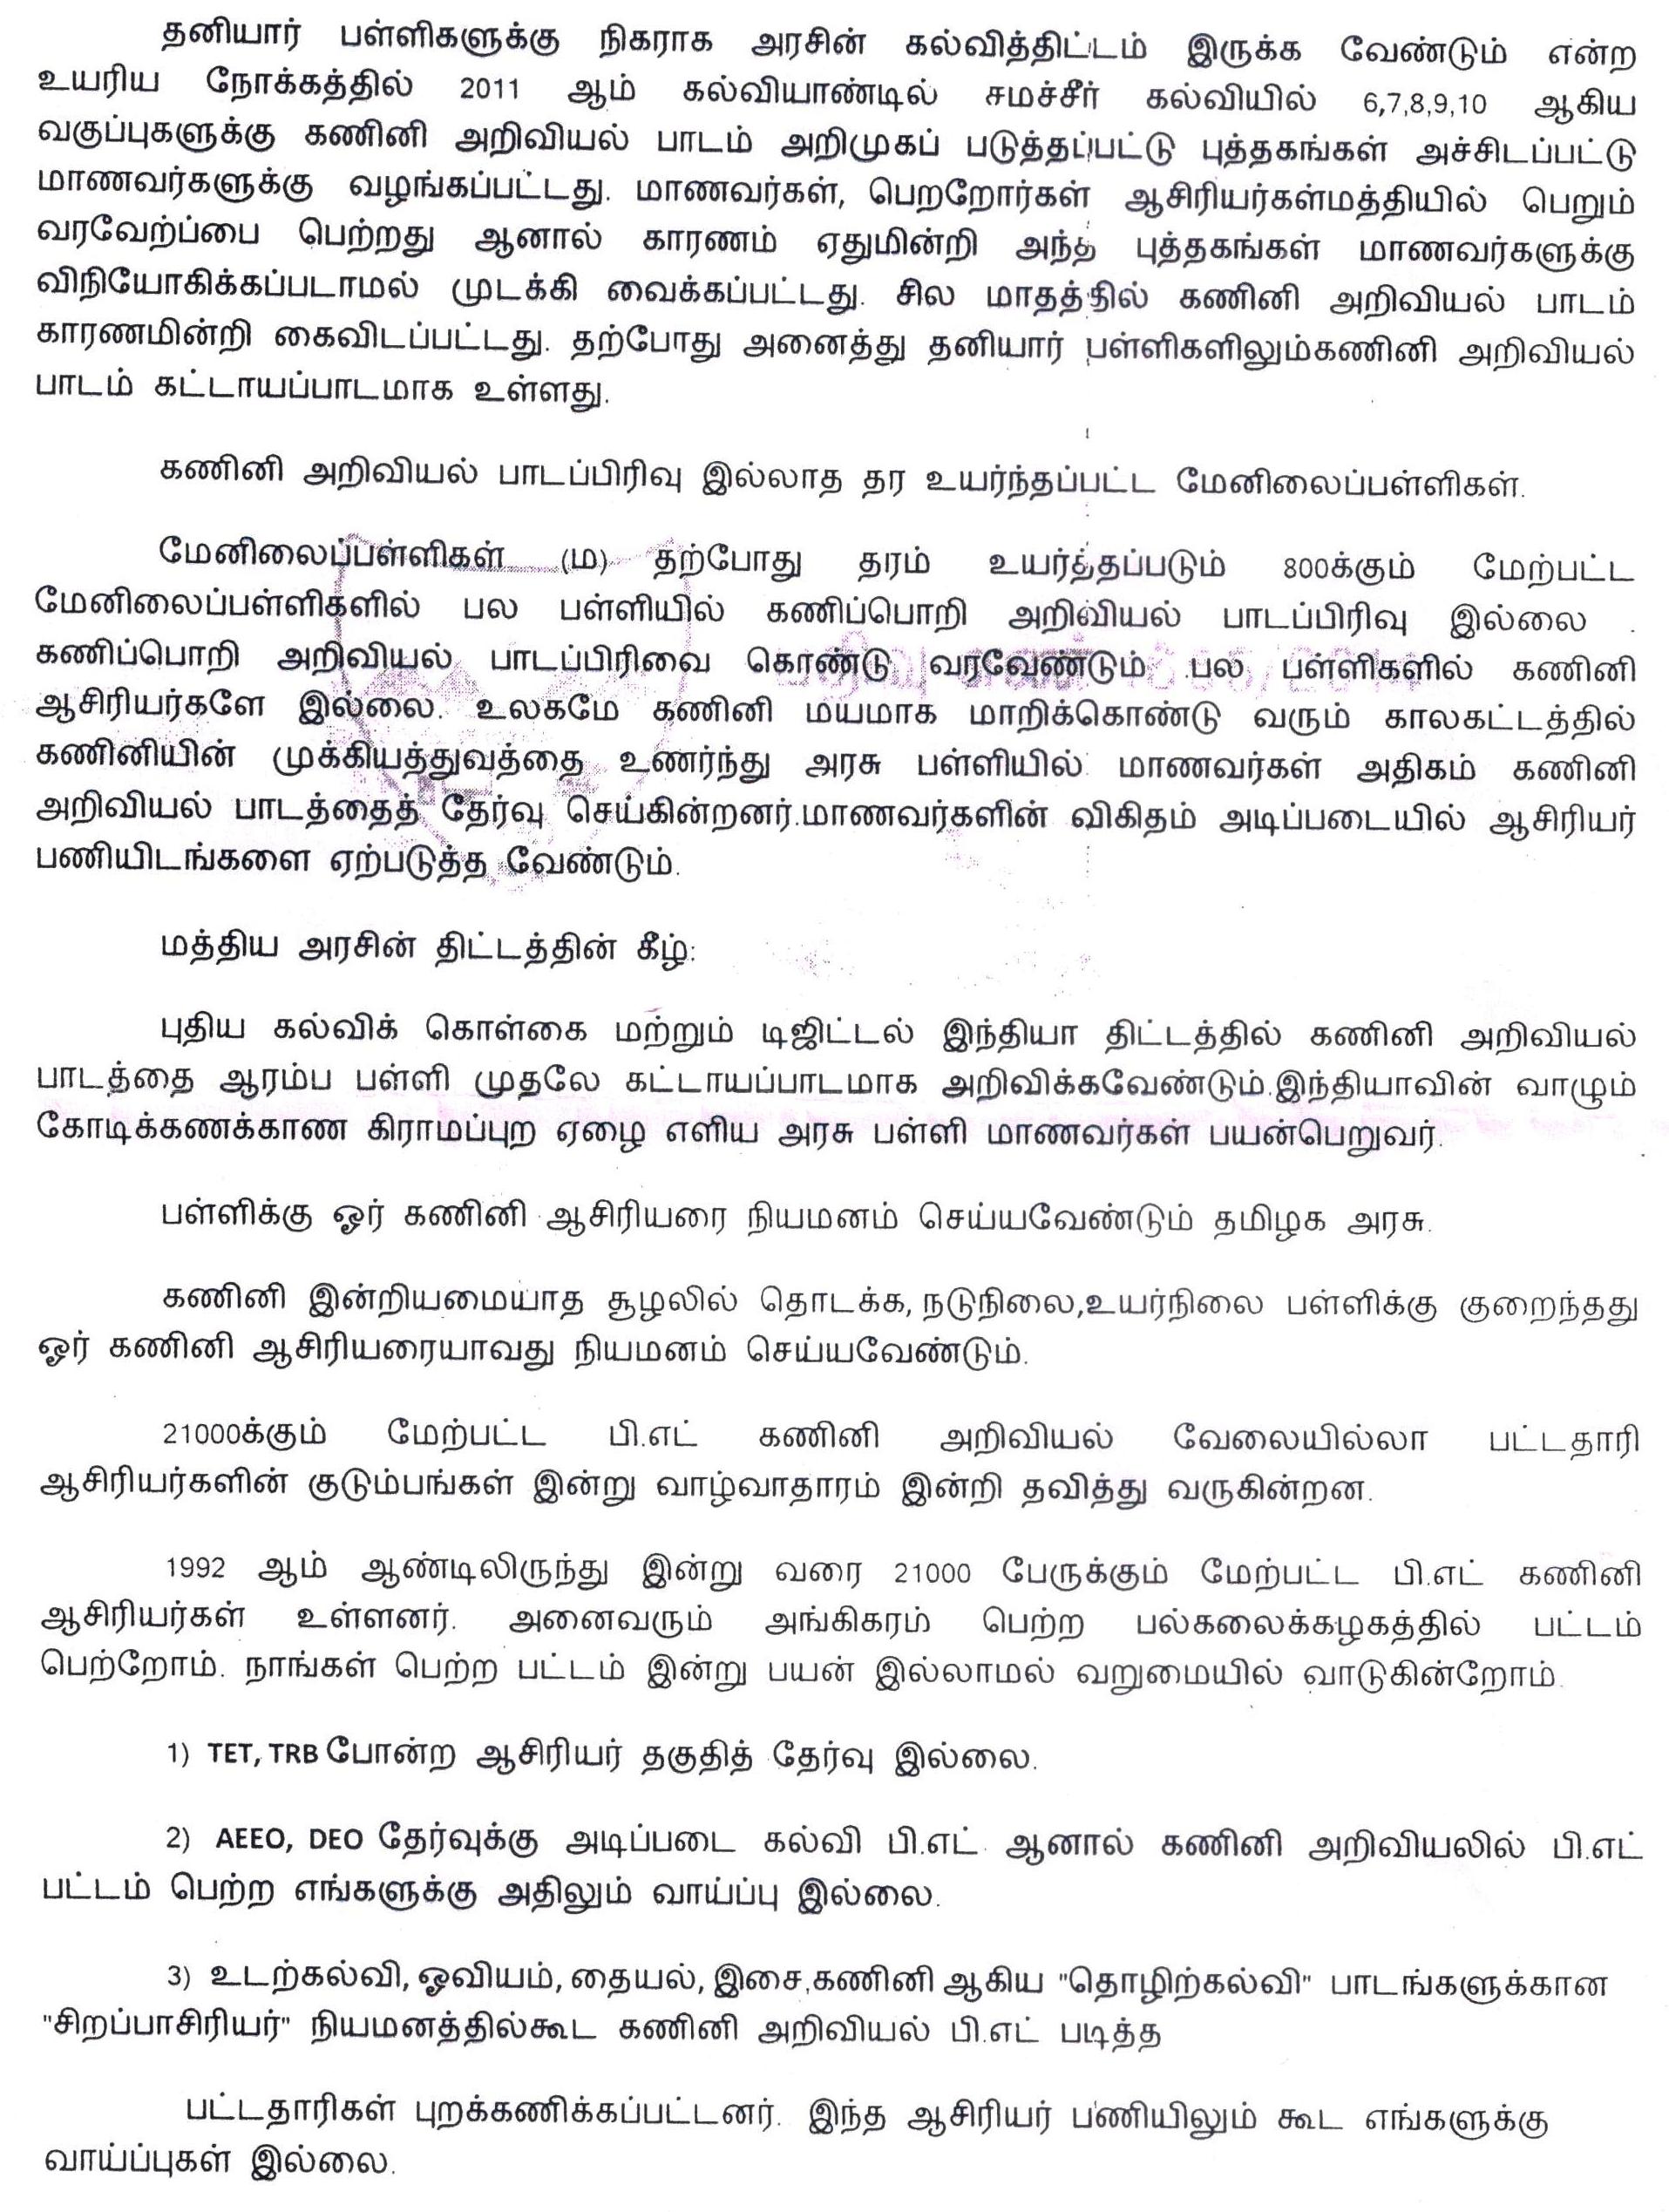 தனியார் பள்ளிகளுக்கு நிகராக அரசின் கல்வித்திட்டம் இருக்க வேண்டும் என்ற
உயரிய நோக்கத்தில் 2011 ஆம் கல்வியாண்டில் சமச்சீர் கல்வியில் 6,7,8,9,10 ஆகிய
வகுப்புகளுக்கு கணினி அறிவியல் பாடம் அறிமுகப் படுத்தப்பட்டு புத்தகங்கள் அச்சிடப்பட்டு
மாணவர்களுக்கு வழங்கப்பட்டது. மாணவர்கள், பெறறோர்கள் ஆசிரியர்கள்மத்தியில் பெறும்
வரவேற்ப்பை பெற்றது ஆனால் காரணம் ஏதுமின்றி அந்த புத்தகங்கள் மாணவர்களுக்கு
விநியோகிக்கப்படாமல் முடக்கி வைக்கப்பட்டது. சில மாதத்தில் கணினி அறிவியல் பாடம்
காரணமின்றி கைவிடப்பட்டது. தற்போது அனைத்து தனியார் பள்ளிகளிலும்கணினி அறிவியல்
பாடம் கட்டாயப்பாடமாக உள்ளது.
கணினி அறிவியல் பாடப்பிரிவு இல்லாத தர உயர்ந்தப்பட்ட மேனிலைப்பள்ளிகள்.
மேனிலைப்பள்ளிகள் (ம) தற்போது தரம் உயர்த்தப்படும் 800க்கும் மேற்பட்ட
மேனிலைப்பள்ளிகளில் பல பள்ளியில் கணிப்பொறி அறிவியல் பாடப்பிரிவு இல்லை .
கணிப்பொறி அறிவியல் பாடப்பிரிவை கொண்டு வரவேண்டும் .பல பள்ளிகளில் கணினி
ஆசிரியர்களே இல்லை. உலகமே கணினி மயமாக மாறிக்கொண்டு வரும் காலகட்டத்தில்
கணினியின் முக்கியத்துவத்தை உணர்ந்து அரசு பள்ளியில் மாணவர்கள் அதிகம் கணினி
அறிவியல் பாடத்தைத் தேர்வு செய்கின்றனர்.மாணவர்களின் விகிதம் அடிப்படையில் ஆசிரியர்
பணியிடங்களை ஏற்படுத்த வேண்டும்.
மத்திய அரசின் திட்டத்தின் கீழ்:
புதிய கல்விக் கொள்கை மற்றும் டிஜிட்டல் இந்தியா திட்டத்தில் கணினி அறிவியல்
பாடத்தை ஆரம்ப பள்ளி முதலே கட்டாயப்பாடமாக அறிவிக்கவேண்டும்.இந்தியாவின் வாழும்
கோடிக்கணக்காண கிராமப்புற ஏழை எளிய அரசு பள்ளி மாணவர்கள் பயன்பெறுவர்.
பள்ளிக்கு ஓர் கணினி ஆசிரியரை நியமனம் செய்யவேண்டும் தமிழக அரசு.
கணினி இன்றியமையாத சூழலில் தொடக்க, நடுநிலை,உயர்நிலை பள்ளிக்கு குறைந்தது
ஓர் கணினி ஆசிரியரையாவது நியமனம் செய்யவேண்டும்.
21000க்கும் மேற்பட்ட பி.எட் கணினி அறிவியல் வேலையில்லா பட்டதாரி
ஆசிரியர்களின் குடும்பங்கள் இன்று வாழ்வாதாரம் இன்றி தவித்து வருகின்றன.
1992 ஆம் ஆண்டிலிருந்து இன்று வரை 21000 பேருக்கும் மேற்பட்ட பி.எட் கணினி
ஆசிரியர்கள் உள்ளனர். அனைவரும் அங்கிகரம் பெற்ற பல்கலைக்கழகத்தில் பட்டம்
பெற்றோம். நாங்கள் பெற்ற பட்டம் இன்று பயன் இல்லாமல் வறுமையில் வாடுகின்றோம்.
1) TET, TRB போன்ற ஆசிரியர் தகுதித் தேர்வு இல்லை.
2) AEEO, DEO தேர்வுக்கு அடிப்படை கல்வி பி.எட் ஆனால் கணினி அறிவியலில் பி.எட்
பட்டம் பெற்ற எங்களுக்கு அதிலும் வாய்ப்பு இல்லை.
3) உடற்கல்வி, ஓவியம், தையல், இசை,கணினி ஆகிய "தொழிற்கல்வி" பாடங்களுக்கான
"சிறப்பாசிரியர்" நியமனத்தில்கூட கணினி அறிவியல் பி.எட் படித்த
பட்டதாரிகள் புறக்கணிக்கப்பட்டனர். இந்த ஆசிரியர் பணியிலும் கூட எங்களுக்கு
வாய்ப்புகள் இல்லை.